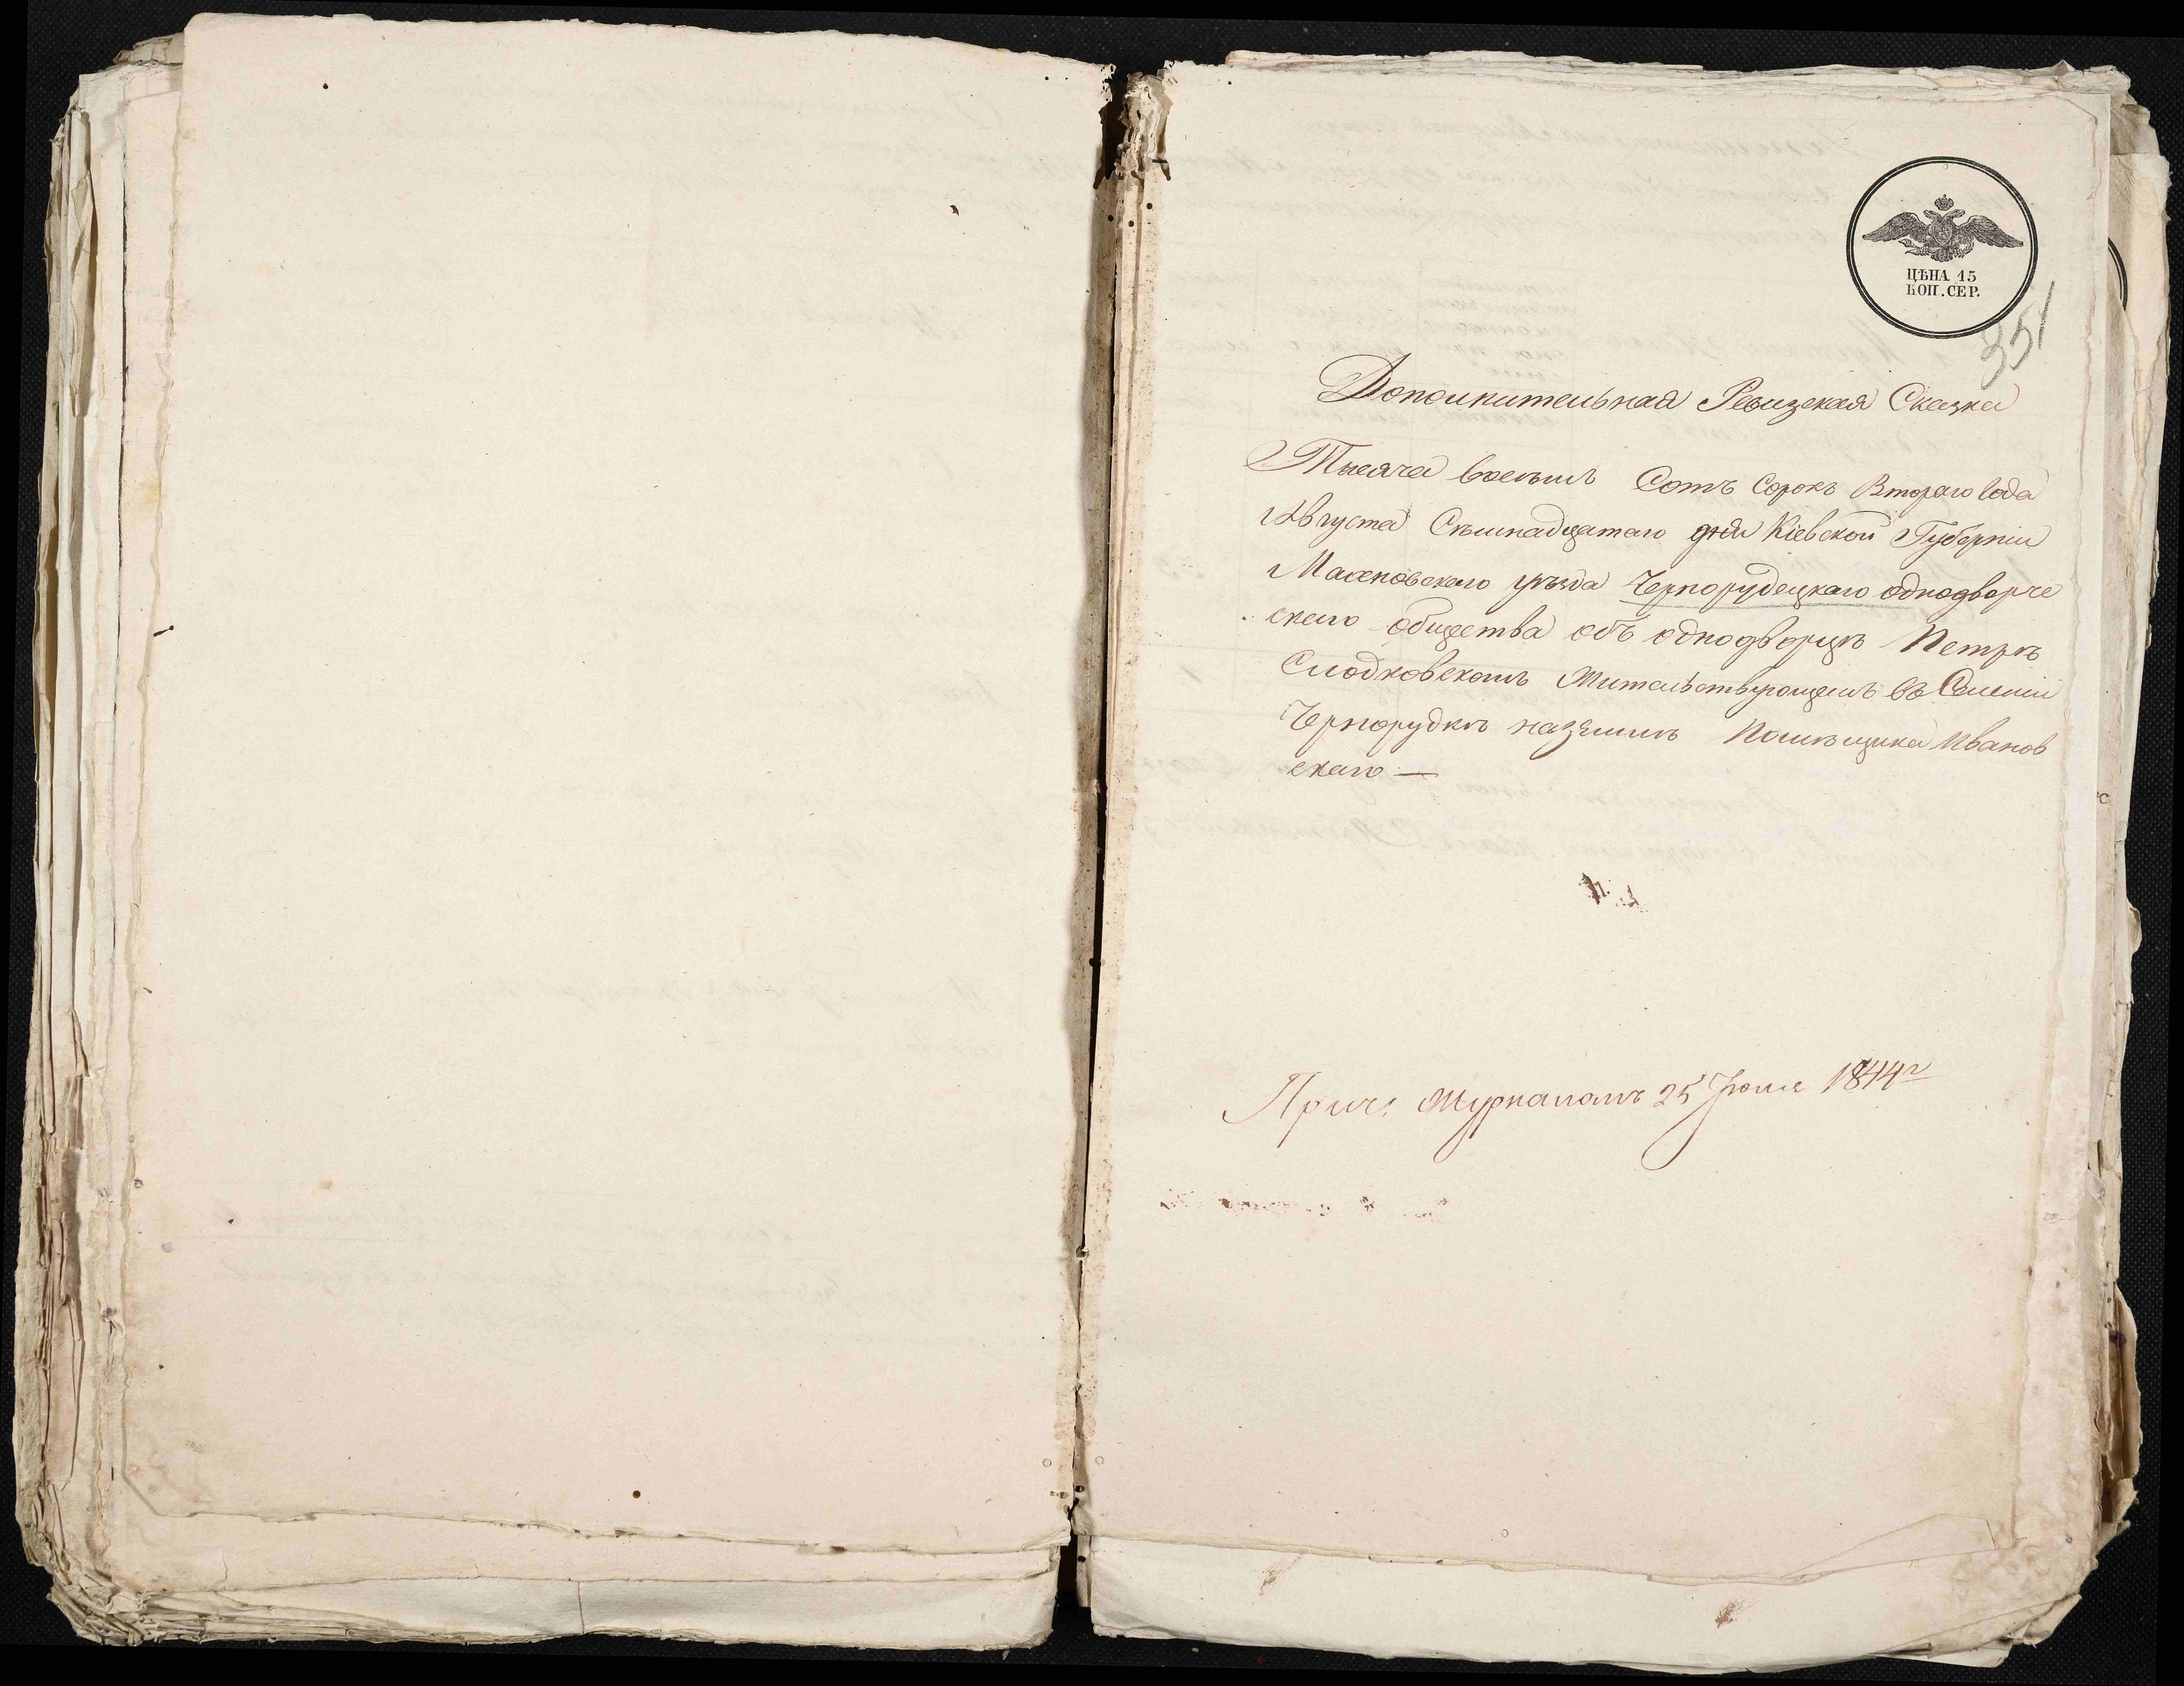 ЦѢНА 15
КОП. СЕР.
351
Дополнительная Ревизская Сказка
Тысяча восемь Сотъ Сорокъ Втораго года
Августа Съмнадцатаго дня Кіевской Губерніи
Махновскаго уѣзда Чернорудецкаго однодворче
скаго общества объ однодворцѣ Петрѣ
Слодковскомъ Жительствующемъ въ Селеніи
Чернорудкѣ на землѣ Помѣщика Иванов
скаго —
Прич. Журналомъ 25 Іюля 1844 г